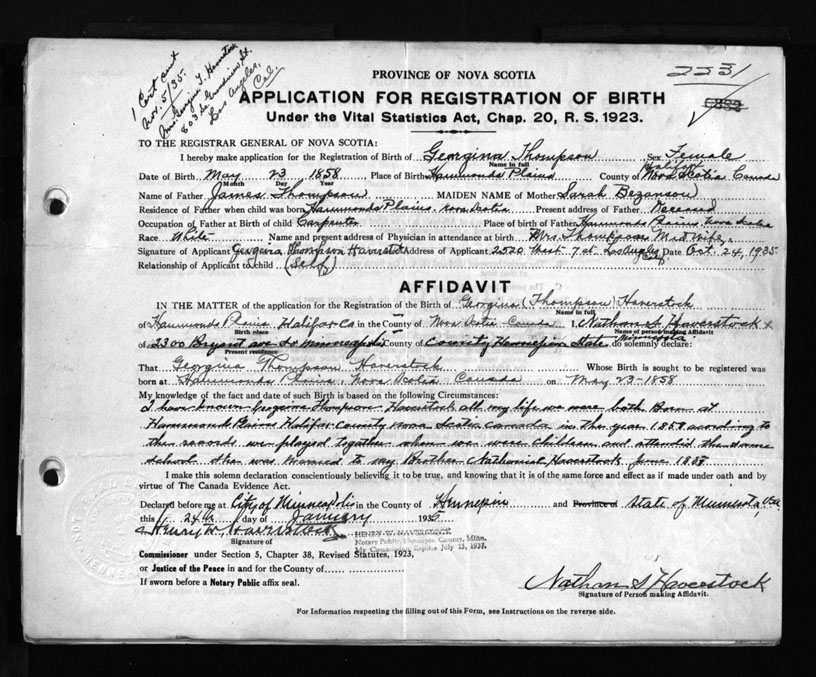 1 Cert sent
Nov. 5/35.
Mrs. Georgina T. Haverstock
Los Angeles,
Cal.
2231
PROVINCE OF NOVA SCOTIA
APPLICATION FOR REGISTRATION OF BIRTH
Under the Vital Statistics Act, Chap. 20, R. S. 1923.
TO THE REGISTRAR GENERAL OF NOVA SCOTIA:
I hereby make application for the Registration of Birth of Georgina Thompson Sex Female
Name in full
Halifax
Date of Birth May 23 1858 Place of Birth Hammonds Plains County of Nova Scotia Canada
Month Day Year
Name of Father James Thompson MAIDEN NAME of Mother Sarah Bezanson
Residence of Father when child was born Hammonds Plains Nova Scotia Present address of Father Deceased
Occupation of Father at Birth of child Carpenter Place of birth of Father Hammonds Plains Nova Scotia
Race White Name and present address of Physician in attendance at birth Mrs Thompson Midwife
Signature of Applicant Georgina Thompson Haverstock Address of Applicant 2520 West 7 st Los Angeles Cal Date Oct. 24, 1935
Relationship of Applicant to child (Self)
AFFIDAVIT
IN THE MATTER of the application for the Registration of the Birth of Georgina (Thompson) Haverstock
Name in full
of Hammonds Plains Halifax Co. in the County of Nova Scotia Canada I, Nathan S Haverstock
Birth place Name of person making Affidavit
Minnesota
of 2300 Bryant ave So Minneapolis County of County Hennepin State do solemnly declare:
Present residence
That Georgina Thompson Haverstock Whose Birth is sought to be registered was
born at Hammonds Plains, Nova Scotia Canada on May 23-1858
My knowledge of the fact and date of such Birth is based on the following Circumstances:
I have known Georgina Thompson Haverstock all my life we were both Born at
Hammonds Plains Halifax County Nova Scotia Canada in the year 1858 acording to
the records we played together when we were children and attended the same
school she was married to my Brother Nathaniel Haverstock June
I make this solemn declaration conscientiously believing it to be true, and knowing that it is of the same force and effect as if made under oath and by
virtue of The Canada Evidence Act.
Declared before me at City of Minneapolis in the County of Hennepin and Province of State of Minnesota USA
this 24th day of January 1935
Henry W. Haverstock
HENRY W. HAVERSTOCK
Notary Public, Hennepin County, Minn.
My Commission Expires July 15, 1937.
Signature of
Commissioner under Section 5, Chapter 38, Revised Statutes, 1923,
or Justice of the Peace in and for the County of
If sworn before a Notary Public affix seal.
Nathan S Haverstock
Signature of Person making Affidavit.
For Information respecting the filling out of this Form, see Instructions on the reverse side.